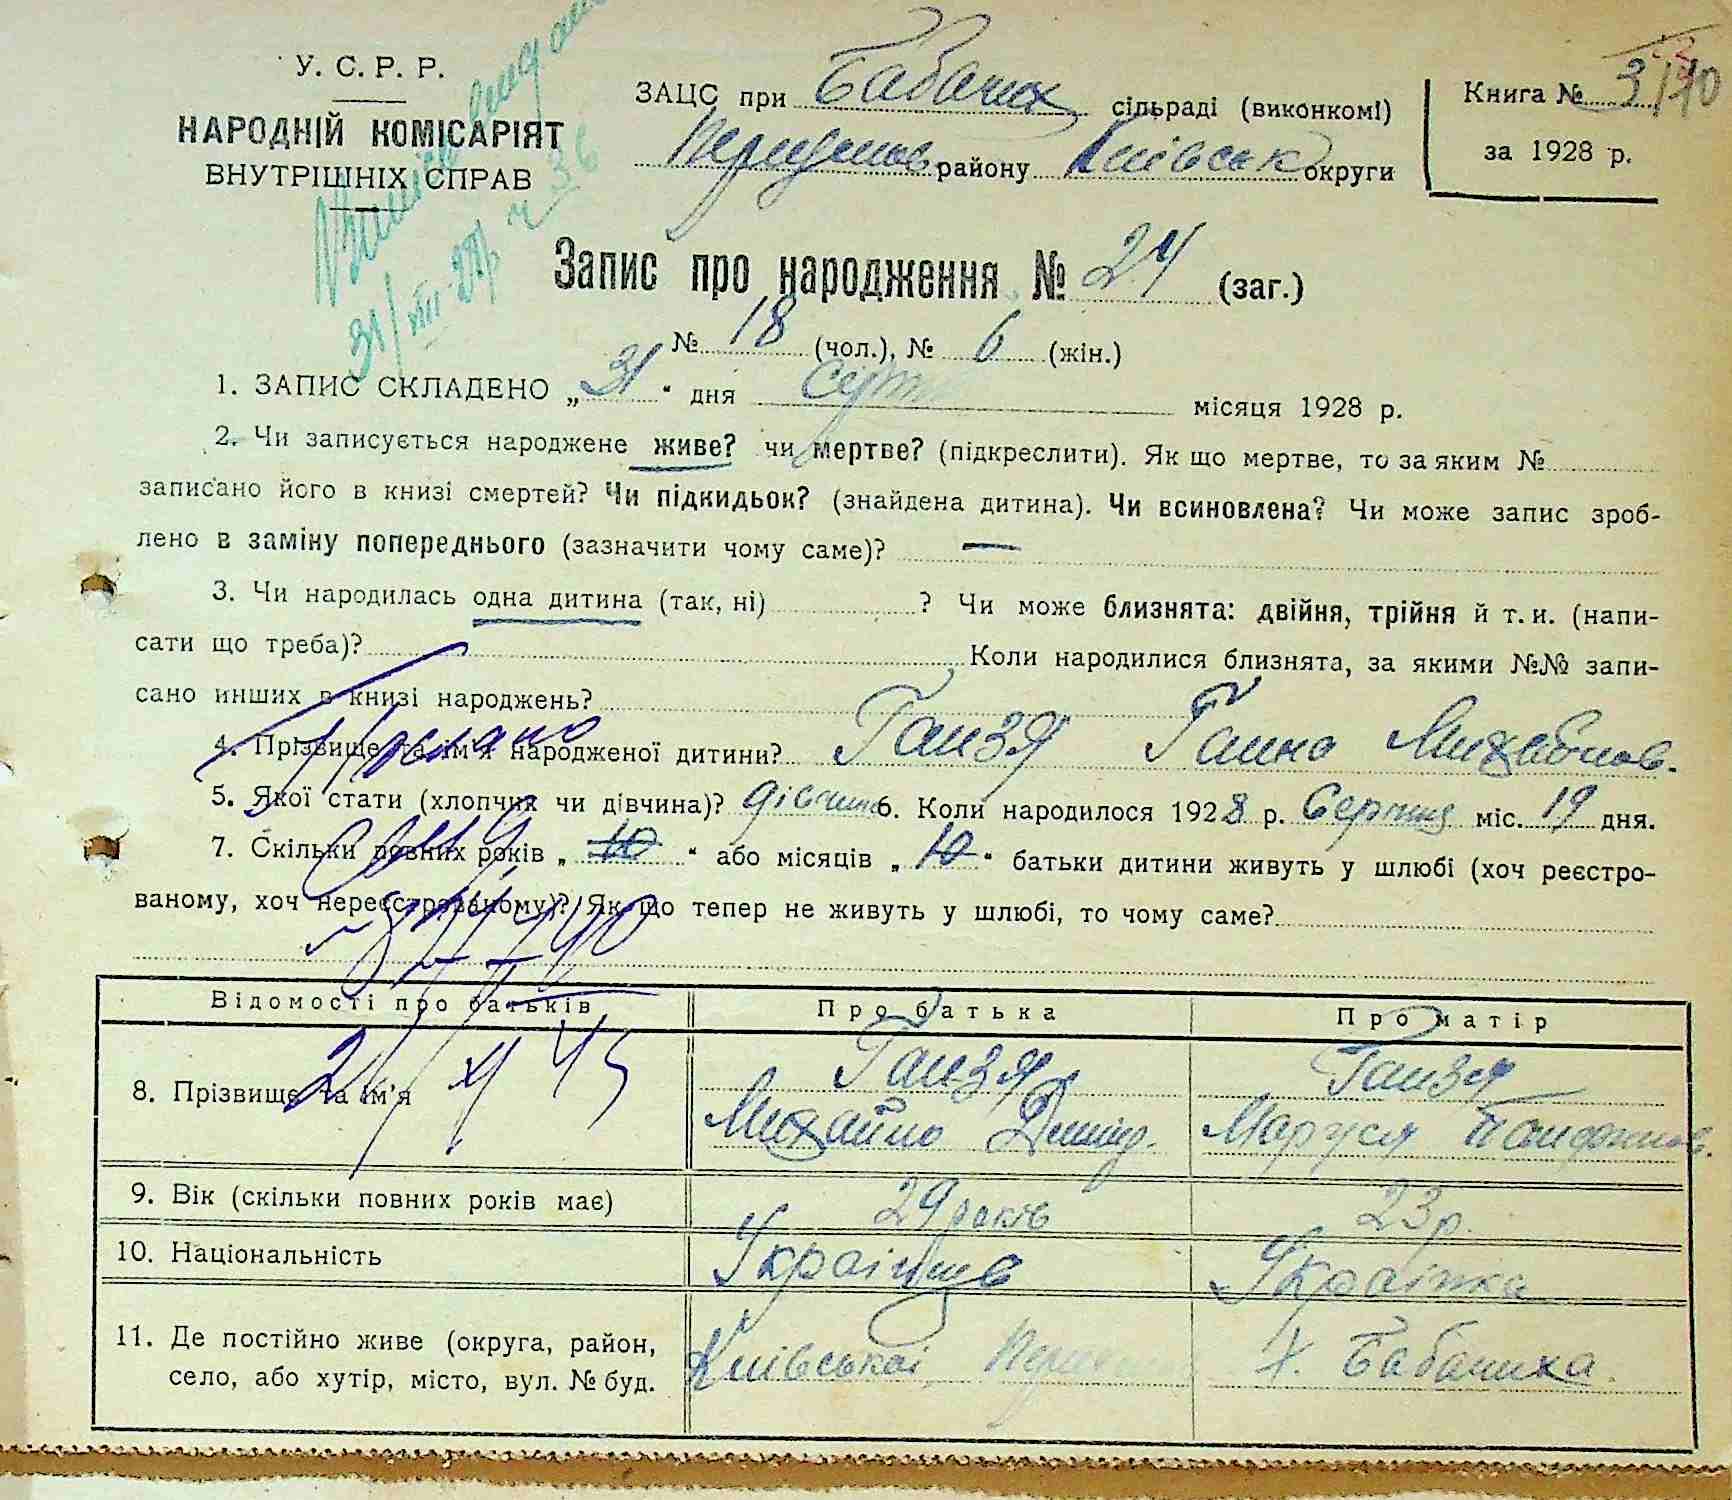 У. С. Р. Р.
НАРОДНІЙ КОМІСАРІЯТ
ВНУТРІШНІХ СПРАВ
ЗАЦС при Бабачих сільраді (виконкомі)
району Київськ округи
Книга №
за 1928 р.
31/XII-
Запис про народження № 24 (заг.)
№ 18 (чол.), № 6 (жін.)
1. ЗАПИС СКЛАДЕНО „31“ дня місяця 1928 р.
2. Чи записується народжене живе? чи мертве? (підкреслити). Як що мертве, то за яким №
записано його в книзі смертей? Чи підкидьок? (знайдена дитина). Чи всиновлена? Чи може запис зроб-
лено в заміну попереднього (зазначити чому саме)? —
3. Чи народилась одна дитина (так, ні) ? Чи може близнята: двійня, трійня й т. и. (напи-
сати що треба)? Коли народилися близнята, за якими №№ запи-
сано инших в книзі народжень?
4. Прізвище та ім'я народженої дитини? Ганзя Ганна Михайлов.
5. Якої стати (хлопчик чи дівчина)? дівчина 6. Коли народилося 1928 р. Серпня міс. 19 дня.
7. Скільки повних років „10“ або місяців „10“ батьки дитини живуть у шлюбі (хоч реєстро-
ваному, хоч нереєстрованому)? Як що тепер не живуть у шлюбі, то чому саме?
Відомості про батьків Про батька Про матір
8. Прізвище та ім'я Ганзя Ганзя
Михайло Маруся
9. Вік (скільки повних років має) 29 років 23 р.
10. Національність Українець Українка
11. Де постійно живе (округа, район, Київської х. Бабачиха
село, або хутір, місто, вул. № буд.